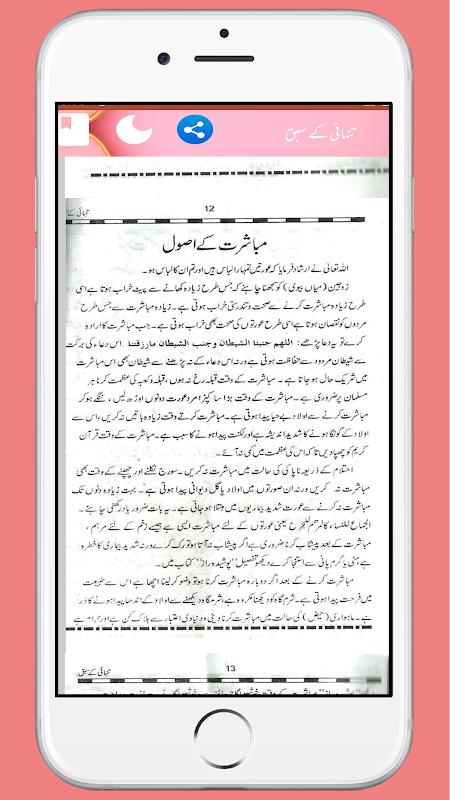 تنہائی کے سبق
تنہائی کے سبق 12
مباشرت کے اصول
اللہ تعالیٰ نے ارشاد فرمایا کہ عورتیں تمہارا لباس ہیں اور تم ان کا لباس ہو۔
زوجین (میاں بیوی) کو سمجھنا چاہئے کہ جس طرح زیادہ کھانے سے پیٹ خراب ہوتا ہے اسی
طرح زیادہ مباشرت کرنے سے صحت و تندرستی خراب ہوتی ہے۔ زیادہ مباشرت سے جس طرح
مردوں کو نقصان ہوتا ہے اسی طرح عورتوں کی صحت بھی خراب ہوتی ہے۔ جب مباشرت کا ارادہ
کرے تو یہ دعا پڑھے: اللهم جنبنا الشيطان وجنب الشيطان مارزقتنا۔ اس دعاء کی برکت
سے شیطان مردود سے حفاظت ہوتی ہے ورنہ اس دعاء کے نہ پڑھنے سے شیطان بھی اس مباشرت
میں شریک حال ہو جاتا ہے۔ مباشرت کے وقت قبلہ رخ نہ ہوں، قبلہ و کعبہ کی عظمت کرنا ہر
مسلمان پر ضروری ہے۔ مباشرت کے وقت بڑا سا کپڑا مرد عورت دونوں اوڑھ لیں، ننگے ہو کر
مباشرت کرنے سے اولاد بے حیا پیدا ہوتی ہے۔ مباشرت کرتے وقت زیادہ باتیں نہ کریں، اس سے
اولاد کے گونگا ہونے کا شدید اندیشہ ہے اور لکنت پیدا ہونے کا سبب ہے۔ مباشرت کے وقت قرآن
کریم کو چھپا دیں تا کہ اس کی عظمت میں کمی نہ آئے۔
احتلام کے ذریعہ ناپاکی کی حالت میں مباشرت نہ کریں۔ سورج نکلنے اور چھپنے کے وقت بھی
مباشرت نہ کریں ورنہ ان صورتوں میں اولاد پاگل دیوانی پیدا ہوتی ہے۔ بہت زیادہ دنوں تک
مباشرت نہ کرنے سے عورت شدید بیماریوں میں مبتلا ہو جاتی ہے۔ یہ بات ضرور یاد رکھنی چاہئے۔
الجماع للنساء کالمرہم للجرح یعنی عورتوں کے لئے مباشرت ایسی ہے جیسے زخم کے لئے مرہم،
مباشرت کے بعد پیشاب کرنا ضروری ہے اگر پیشاب نہ آتا ہو تو رک کرے ورنہ شدید بیماری کا خطرہ
ہے، نیم گرم پانی سے استنجا کرے دیکھو تفصیل "پوشیدہ راز" کتاب میں۔
مباشرت کرنے کے بعد اگر دوبارہ مباشرت کرنا ہو تو وضو کر لینا اچھا ہے اس سے طبیعت
میں فرحت پیدا ہوتی ہے۔ شرم گاہ کو دیکھنا مکروہ ہے، شرمگاہ دیکھنے سے اولاد کے اندھا پیدا ہونے کا ڈر
ہے۔ ماہواری (حیض) کی حالت میں مباشرت کرنا دینی و دنیاوی اعتبار سے ہلاک کن ہے اور حرام ہے
تنہائی کے سبق 13